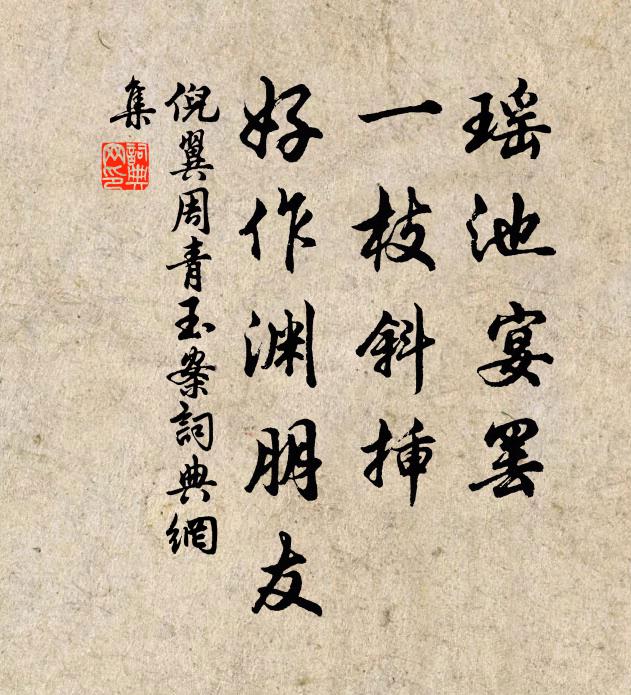 瑶池宴罢
一枝斜插
好作渊朋友
倪翼周青玉案詞典網
集
詞典
网印